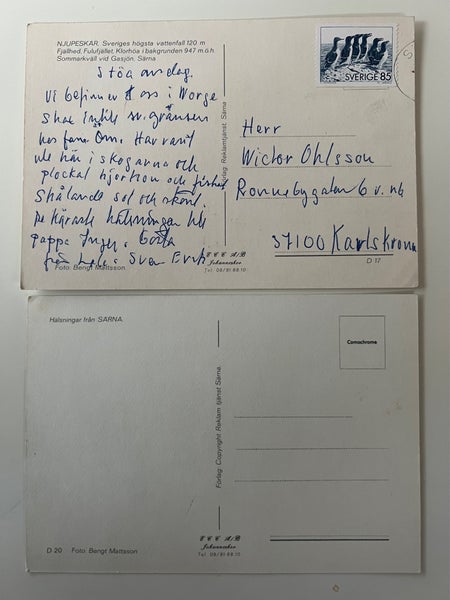 NJUPESKÄR. Sveriges högsta vattenfall 120 m
Fjällhed, Fulufjället, Klorhöa i bakgrunden 947 m.ö.h
Sommarkväll vid Gasjön, Särna
Stöa onsdag.
Vi befinner oss i Norge
strax intill sv. gränsen
hos fam. Öm. Har varit
ute här i skogarna och
plockat hjortron och fiskat
Strålande sol och skönt.
De käraste hälsningar till
pappa Inger,
från
Sven Erik
Foto: Bengt Mattsson
Förlag: Reklamtjänst. Särna
SVERIGE 85
Herr
Wictor Ohlsson
Ronnebygatan 6
37100 Karlskrona
D 17
C C A/B
Johanneshov
Tel. 08/91 88 10
Hälsningar från SÄRNA.
Comochrome
Förlag: Copyright Reklam tjänst Särna.
C C A/B
Johanneshov
Tel. 08/91 88 10
D 20 Foto: Bengt Mattsson